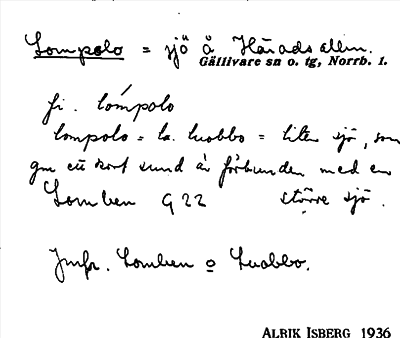 Lompolo = sjö å Häradsallm.
Gällivare sn o. tg, Norrb. l.
fi. lompolo
lompolo = la. luobbo = liten sjö, som
gm ett kort sund är förbunden med en
Lomben G 22 större sjö.
Jmfr. Lomben o Luobbo.
ALRIK ISBERG 1936